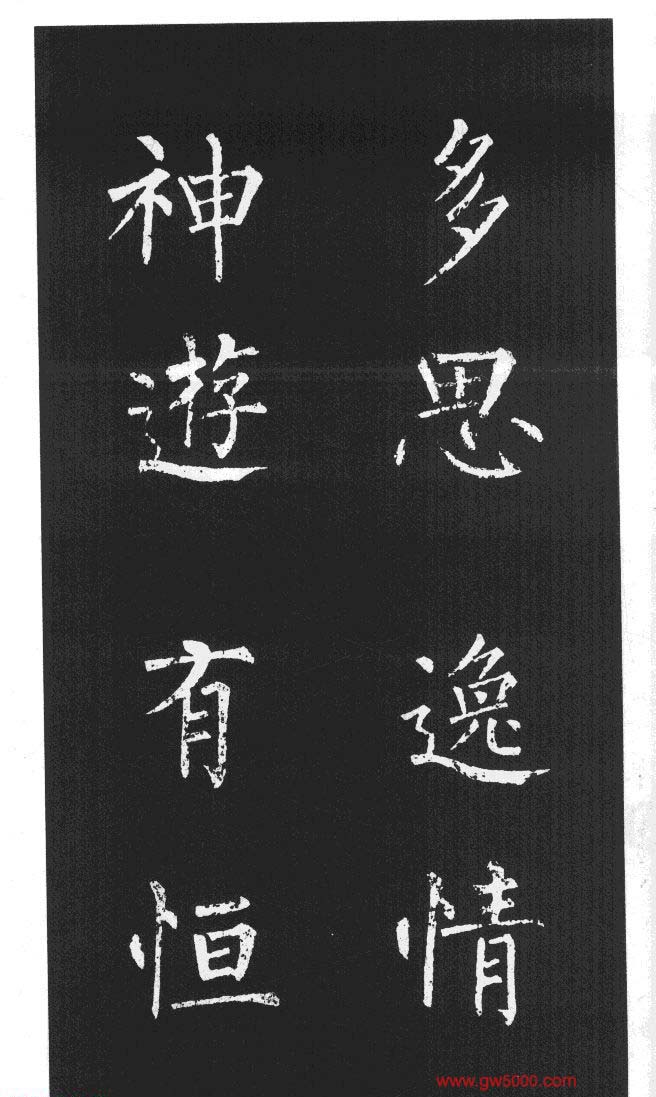 多思逸情
神遊有恒
www.gw5000.com